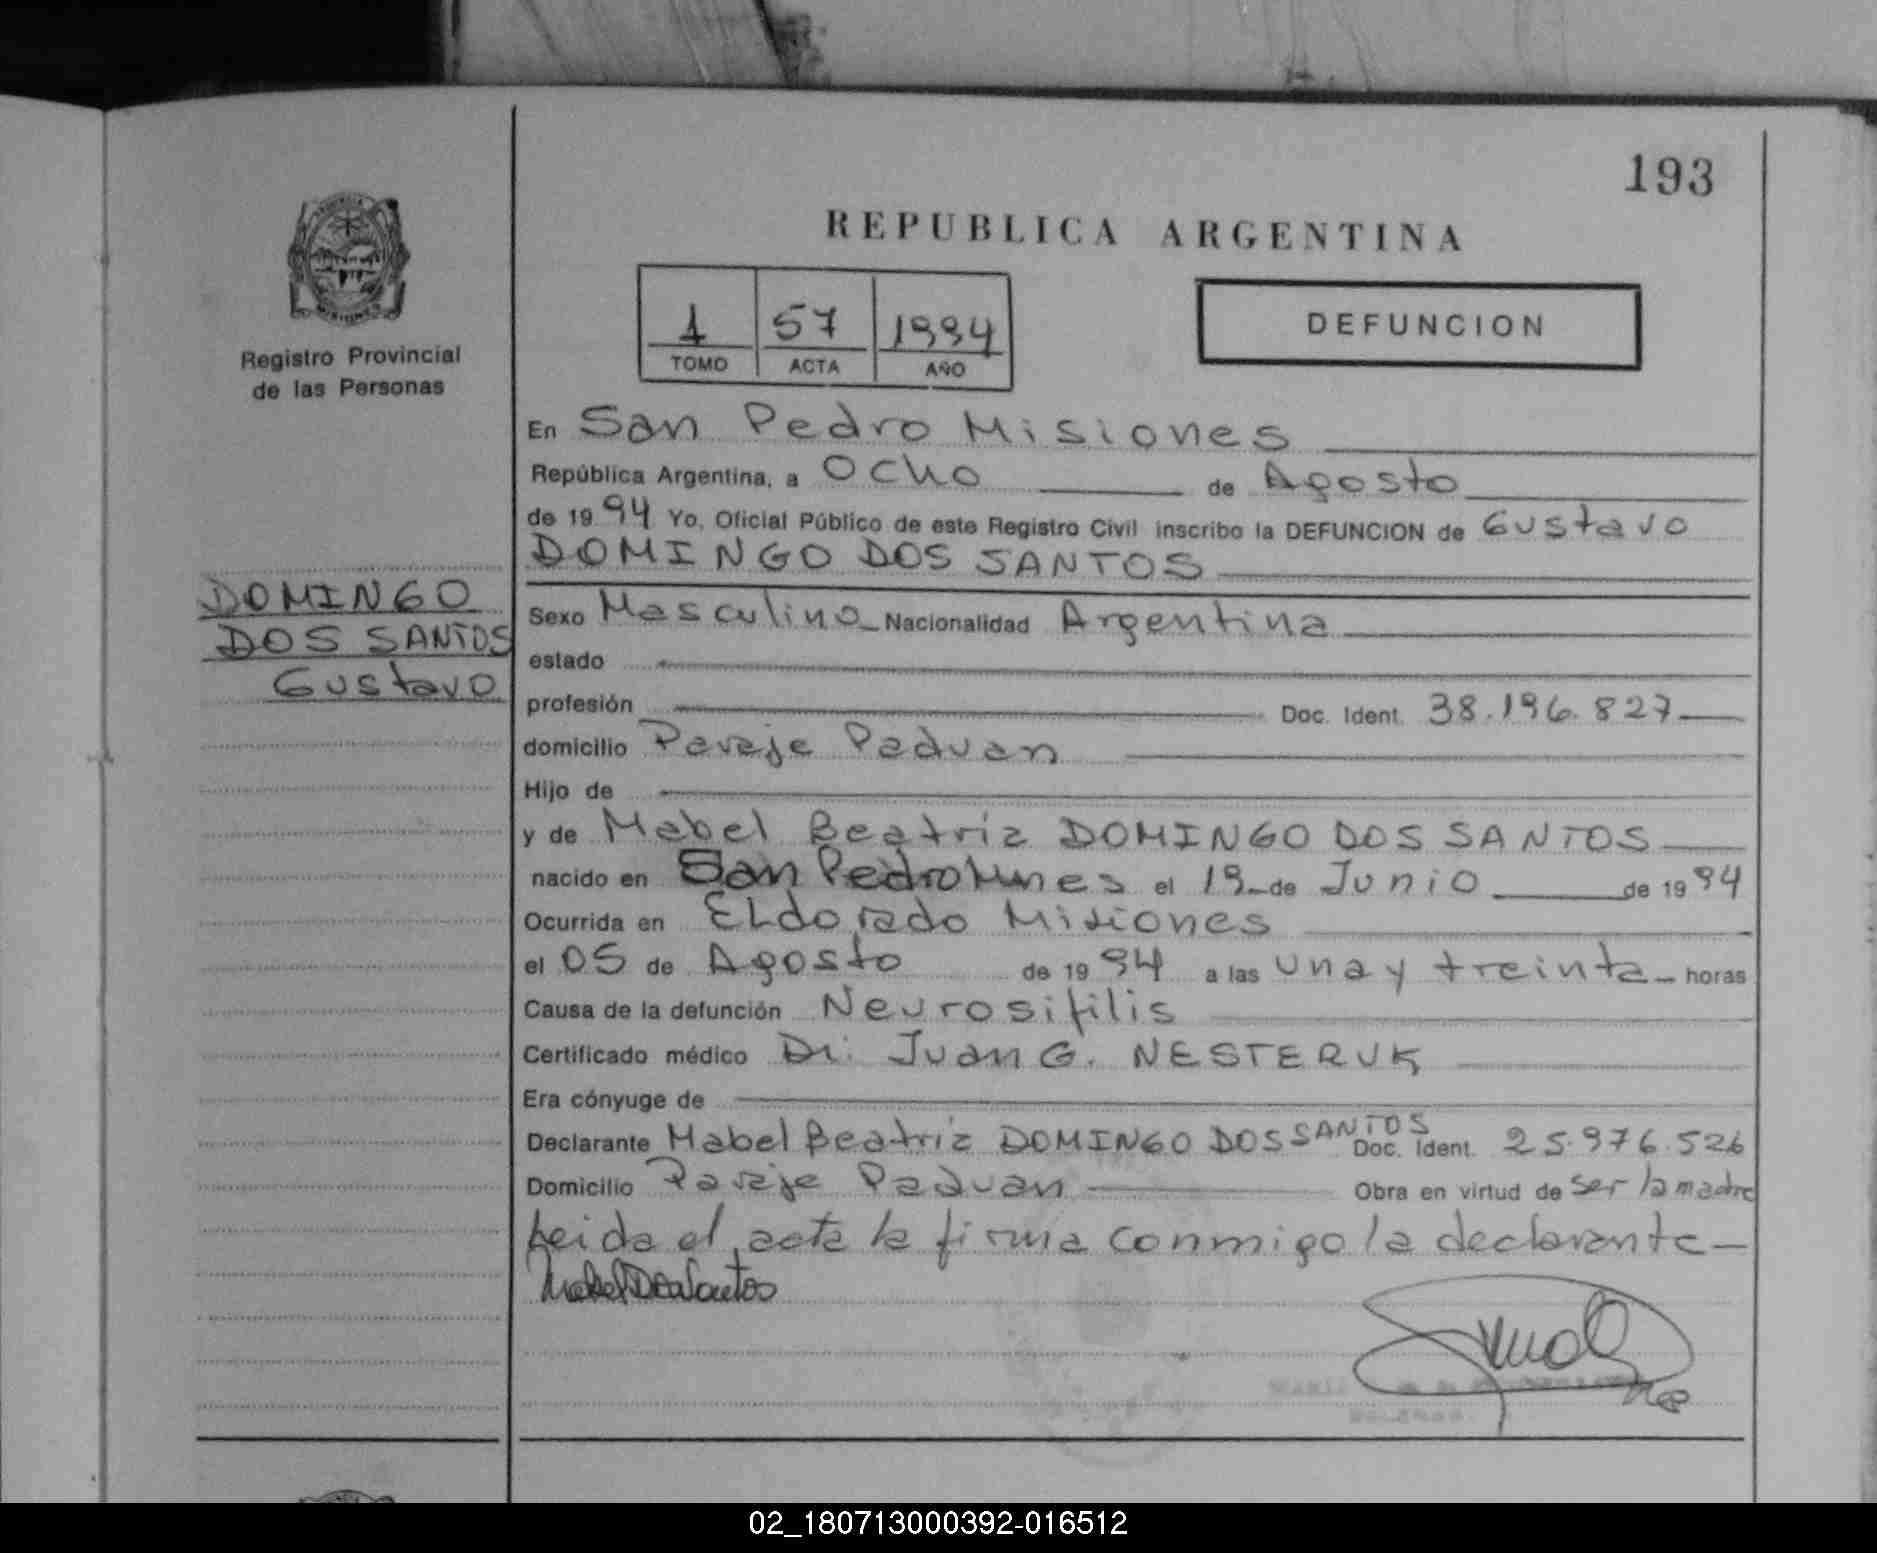 193
REPUBLICA ARGENTINA
Registro Provincial
de las Personas
1 57 1994
TOMO ACTA AÑO
DEFUNCION
DOMINGO
DOS SANTOS
Gustavo
En San Pedro Misiones
República Argentina, a Ocho de Agosto
de 1994 Yo, Oficial Público de este Registro Civil inscribo la DEFUNCION de Gustavo
DOMINGO DOS SANTOS
Sexo Masculino Nacionalidad Argentina
estado
profesión Doc. Ident. 38.196.827
domicilio Paraje Paduan
Hijo de
y de Mabel Beatriz DOMINGO DOS SANTOS
nacido en San Pedro Mnes el 19 de Junio de 1994
Ocurrida en ELdorado Misiones
el 05 de Agosto de 1994 a las una y treinta horas
Causa de la defunción Neurosifilis
Certificado médico Dr. Juan G. NESTERUK
Era cónyuge de
Declarante Mabel Beatriz DOMINGO DOS SANTOS Doc. Ident. 25.976.526
Domicilio Paraje Paduan Obra en virtud de ser la madre
Leida el acta la firma conmigo la declarante
Mabel Dos Santos
02_180713000392-016512